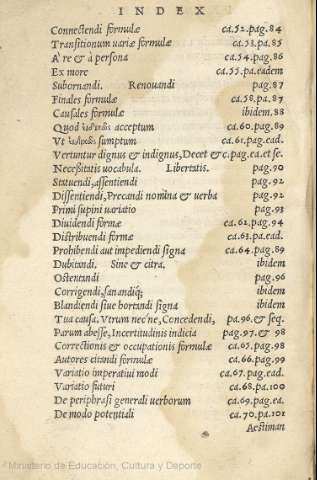 INDEX
Connectendi formulæ ca.52.pag.84
Transitionum uariæ formulæ ca.53.pa.85
A' re & à persona ca.54.pag.86
Ex more ca.55.pa.eadem
Subornandi. Renouandi pag.87
Finales formulæ ca.58.pa.87
Causales formulæ ibidem.88
Quod acceptum ca.60.pag.89
Vt sumptum ca.61.pag.ead.
Vertuntur dignus & indignus, Decet & c.pag.ea.et se.
Necessitatis uocabula. Libertatis. pag.90
Statuendi, assentiendi pag.92
Dissentiendi, Precandi nomina & uerba pag.92
Primi supini uariatio pag.93
Diuidendi formæ ca.62.pag.94
Distribuendi formæ ca.63.pa.ead.
Prohibendi aut impediendi signa ca.64.pag.89
Dubitandi. Sine & citra. ibidem
Ostentandi pag.96
Corrigendi, sanandiq; ibidem
Blandiendi siue hortandi signa ibidem
Tua causa. Vtrum nec'ne, Concedendi, pa.96.& seq.
Parum abesse, Incertitudinis indicia pag.97.& 98
Correctionis & occupationis formulæ ca.65.pag.98
Autores citandi formulæ ca.66.pag.99
Variatio imperatiui modi ca.67.pag.ead.
Variatio futuri ca.68.pa.100
De periphrasi generali uerborum ca.69.pag.ea.
De modo potentiali ca.70.pa.101
Aestiman
Ministerio de Educación, Cultura y Deporte